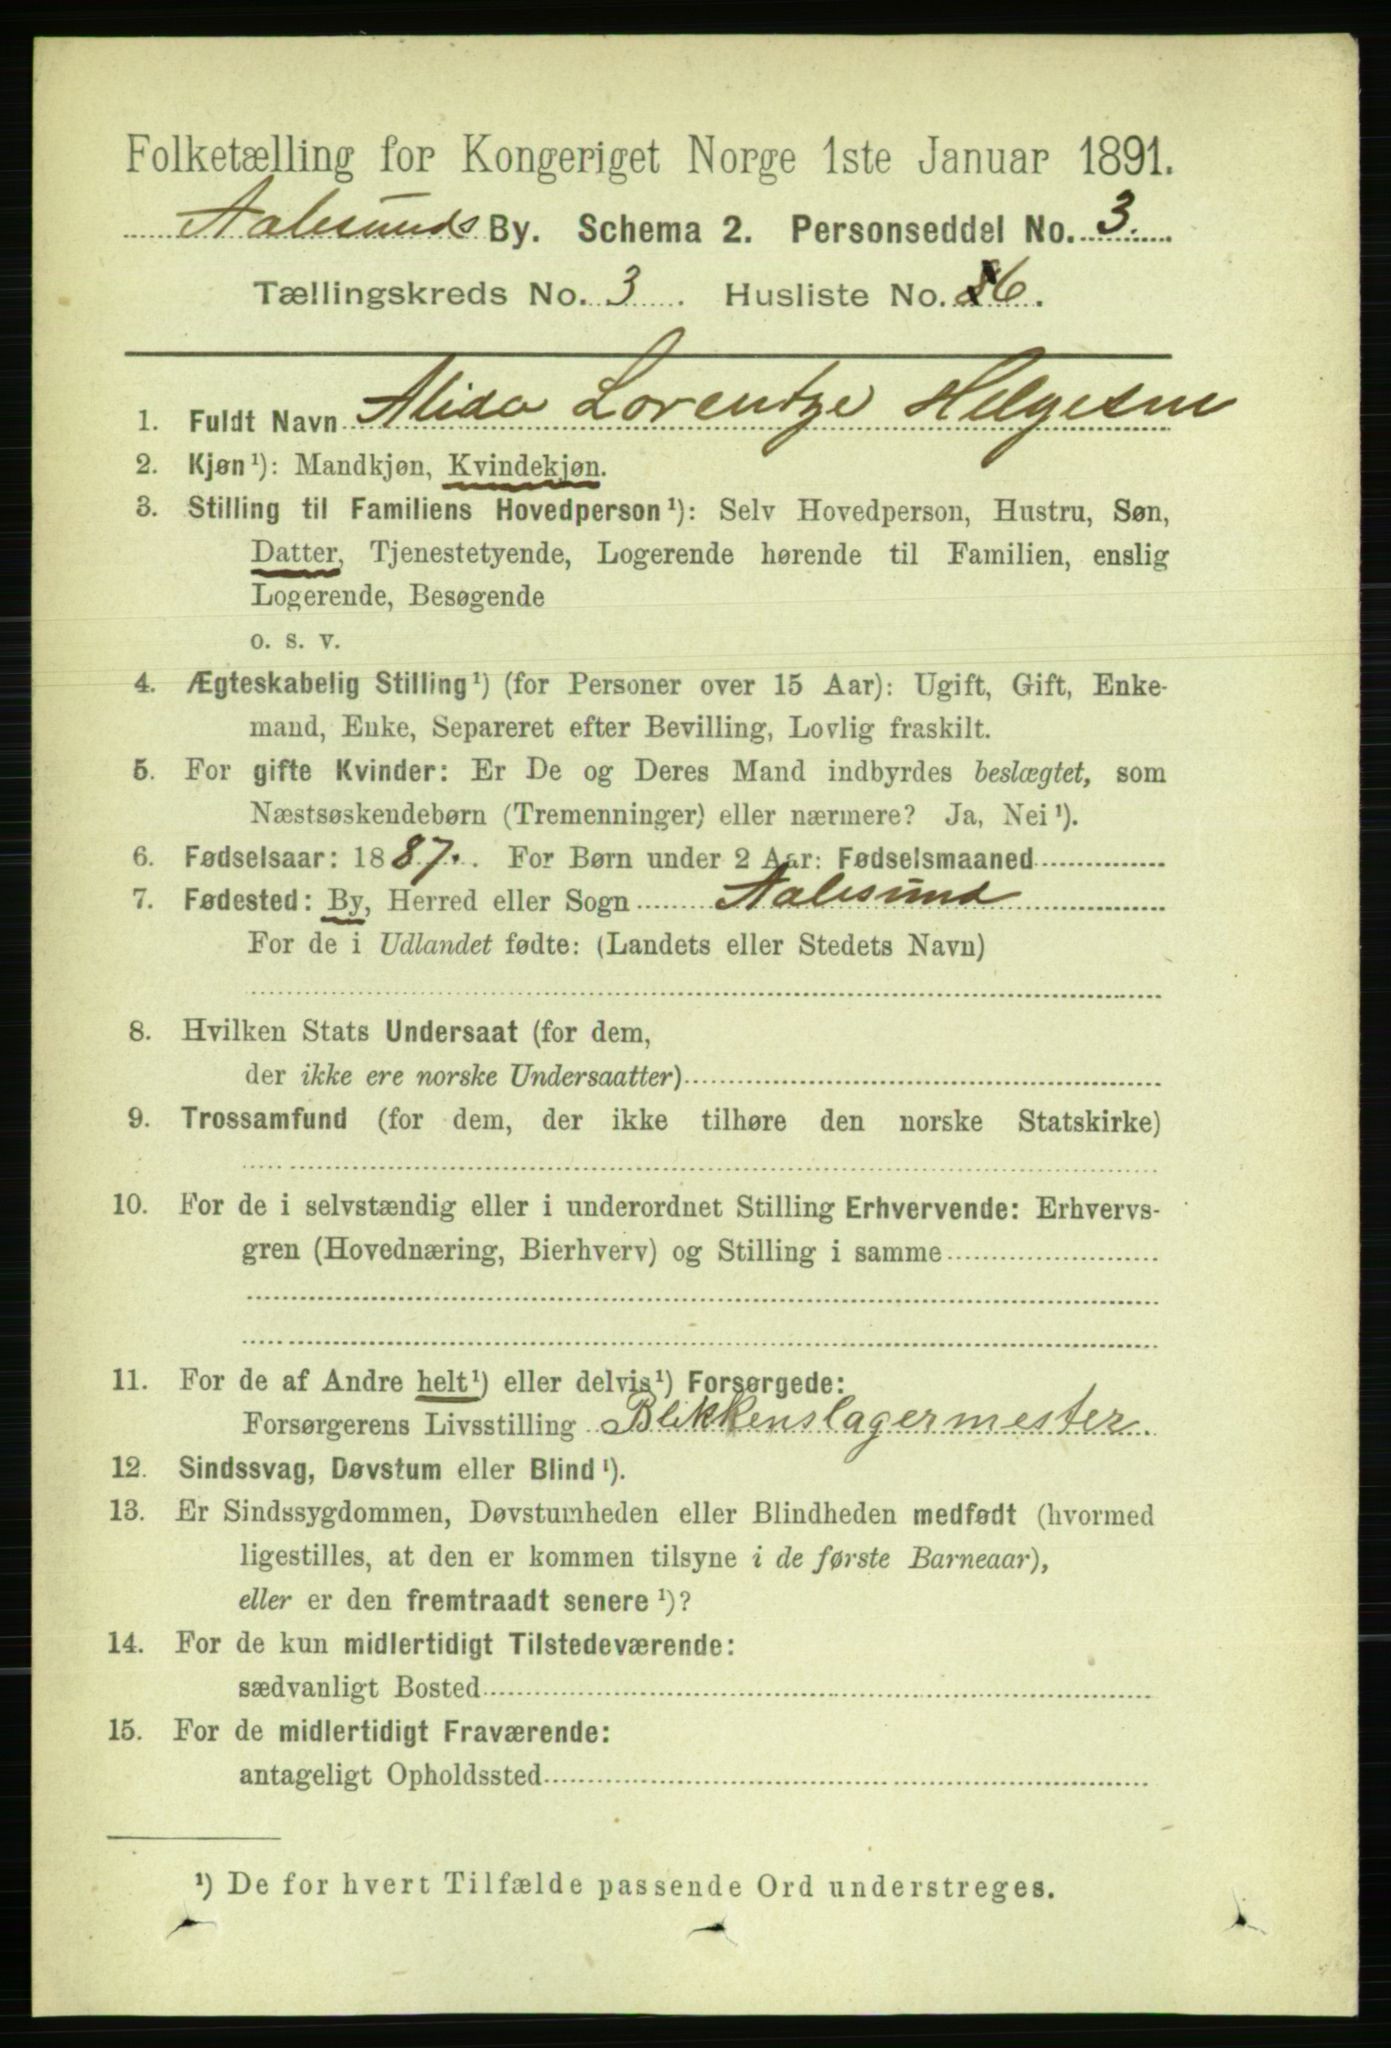 Folketælling for Kongeriget Norge 1ste Januar 1891.
Aalesunds By. Schema 2. Personseddel No. 3.
Tællingskreds No. 3. Husliste No. 6.
1. Fuldt Navn Alida Lorentze Helgesen
2. Kjøn¹): Mandkjøn, Kvindekjøn.
3. Stilling til Familiens Hovedperson¹): Selv Hovedperson, Hustru, Søn,
Datter, Tjenestetyende, Logerende hørende til Familien, enslig
Logerende, Besøgende
o. s. v.
4. Ægteskabelig Stilling¹) (for Personer over 15 Aar): Ugift, Gift, Enke-
mand, Enke, Separeret efter Bevilling, Lovlig fraskilt.
5. For gifte Kvinder: Er De og Deres Mand indbyrdes beslægtet, som
Næstsøskendebørn (Tremenninger) eller nærmere? Ja, Nei¹).
6. Fødselsaar: 1887. For Børn under 2 Aar: Fødselsmaaned
7. Fødested: By, Herred eller Sogn Aalesund
For de i Udlandet fødte: (Landets eller Stedets Navn)
8. Hvilken Stats Undersaat (for dem,
der ikke ere norske Undersaatter)
9. Trossamfund (for dem, der ikke tilhøre den norske Statskirke)
10. For de i selvstændig eller i underordnet Stilling Erhvervende: Erhvervs-
gren (Hovednæring, Bierhverv) og Stilling i samme
11. For de af Andre helt¹) eller delvis¹) Forsørgede:
Forsørgerens Livsstilling Blikkenslagermester.
12. Sindssvag, Døvstum eller Blind¹).
13. Er Sindssygdommen, Døvstumheden eller Blindheden medfødt (hvormed
ligestilles, at den er kommen tilsyne i de første Barneaar),
eller er den fremtraadt senere¹)?
14. For de kun midlertidigt Tilstedeværende:
sædvanligt Bosted
15. For de midlertidigt Fraværende:
antageligt Opholdssted
¹) De for hvert Tilfælde passende Ord understreges.